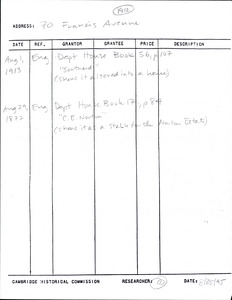 ADDRESS: 70 Francis Avenue
DATE REF. GRANTOR GRANTEE PRICE DESCRIPTION
Aug 1, Eng. Dept House Book 56, p.107
1913
(shows it altered into a house)
Aug 29, Eng. Dept House Book 17, p 84
1877 "C.E. Norton"
(shows it as a stable for the Norton Estate)
CAMBRIDGE HISTORICAL COMMISSION RESEARCHER: DATE: